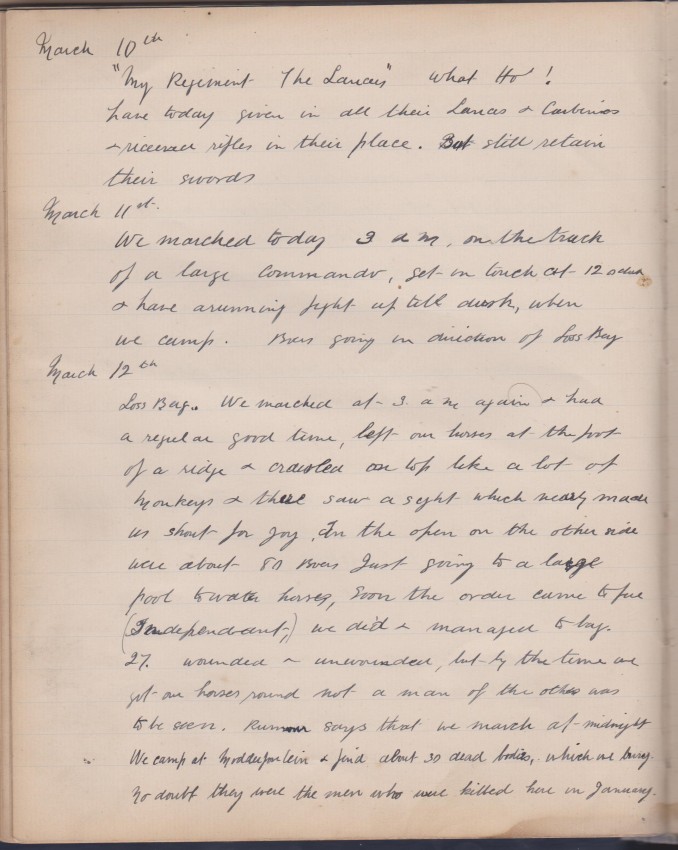 March 10th
"My Regiment The Lancers" What Ho!
have today given in all their Lances & Carbines
& received rifles in their place. But still retain
their swords
March 11st.
We marched today 3 a m, on the track
of a large Commando, get in touch at 12 oclock
& have a running fight up till dusk, when
we camp. Boers going in direction of Loss Bag
March 12th
Loss Bag. We marched at 3. a m again & had
a regular good time, left our horses at the foot
of a ridge & crawled on top like a lot of
Monkeys & there saw a sight which nearly made
us shout for joy, In the open on the other side
were about 80 Boers Just going to a large
pool to water horses, Soon the order came to fire
(Independent,) we did & managed to bag.
27. wounded & unwounded, but by the time we
got our horses round not a man of the others was
to be seen. Rumour says that we march at midnight
We camp at Modderfontein & find about 30 dead bodies, which we bury.
No doubt they were the men who were killed here in January.